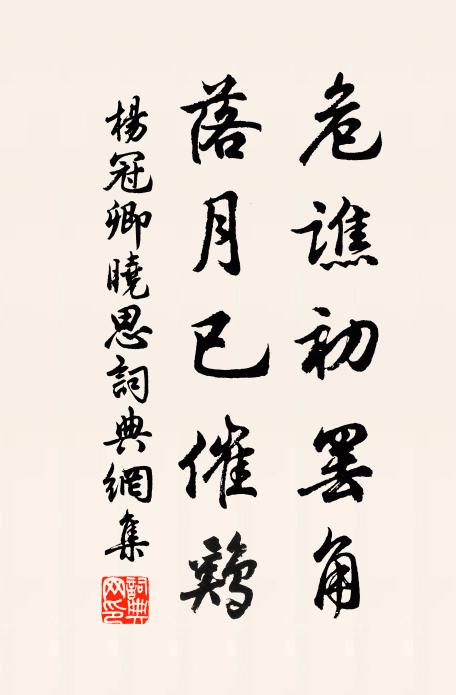 危譙初罢角
落月已催鷄
楊冠卿曉思詞典網集
詞典網印